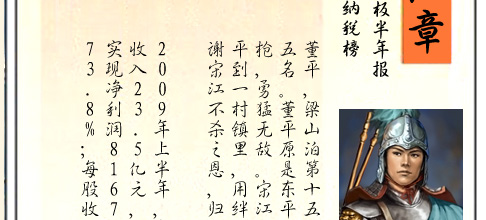 章
板半年报
纳税榜
董平，梁山泊第十五
五名。董平原是东平
抢，勇猛无敌。宋江
平到一村镇里，用绊
谢宋江不杀之恩，归
2009年上半年，
收入23.5亿元，
实现净利润8167
73.8%；每股收